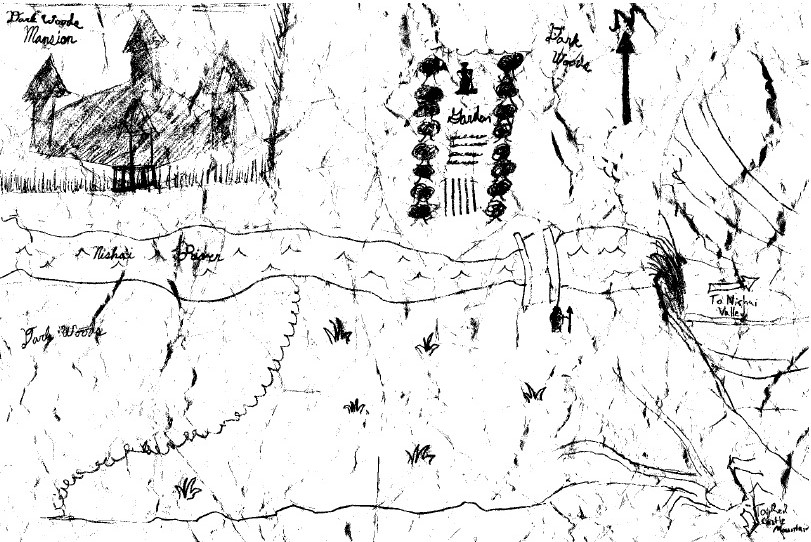 Dark Woods
Mansion
N
Dark
Woods
Garden
Nishai River
To Nishai
Valley
Dark Woods
To Red
Castle
Mountain